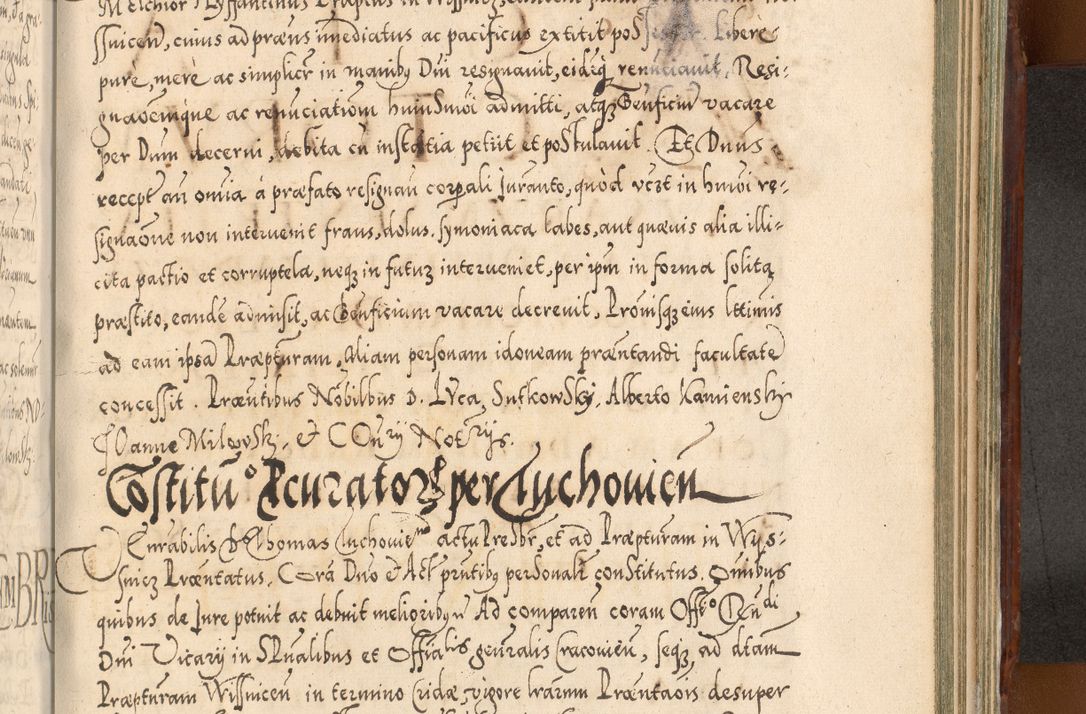 Melchior Lyssantinus Præptus in Wissnic,
ssnicen, cuius ad præns imediatus ac pacificus extitit possessor. Libere
pure, mere ac simplicr in manibq Dni resignauit, eidqʒ renunciauit, Resi:
gnaōemque ac renuciationi huiusmōi admitti, atqʒ Benficiū vacare
per Dnm decerni, debita cū instātia petiit et postulauit. Et Dnus
recept an omia á præfato resignan corpali Iuranto, quòd vczt in hmōi re:
signaōne non interuenit fraus, dolus, symoniaca labes, aut quæuis alia illi:
cita pactio et corruptela, neqʒ in futuʒ interueniet, per ipm in forma solita
præstito, eandē admisit, ac Benficium vacare decreuit, Promisqʒ eius lttimis
ad eam ipsā Præpturam, Aliam personam idoneam præntandi facultatē
concessit. Præntibus Nobilbus D. Lvca, Sutkowskj, Alberto Kamienskij
IOanne Milewskj, et COnrij Notrijs.
Cōstitūo Pcuratorʒ per Tuchouien
VEnrabilis D Thomas Tuchouien actu Presbr, et ad Præpturam in Wijs:
sniczPræentatus, Corā Dno et Act prntibq personalr constitutus, Omibus
quibus de Iure potuit ac debuit melioribq Ad comparen coram Offo Rndi
Dni Vicarij in SPnalibus et Offialis generalis Cracouien, seqʒ ad dtam
Præpturam Wissnicen in termino Cridæ, vigore lrarum Præntaōis desuper